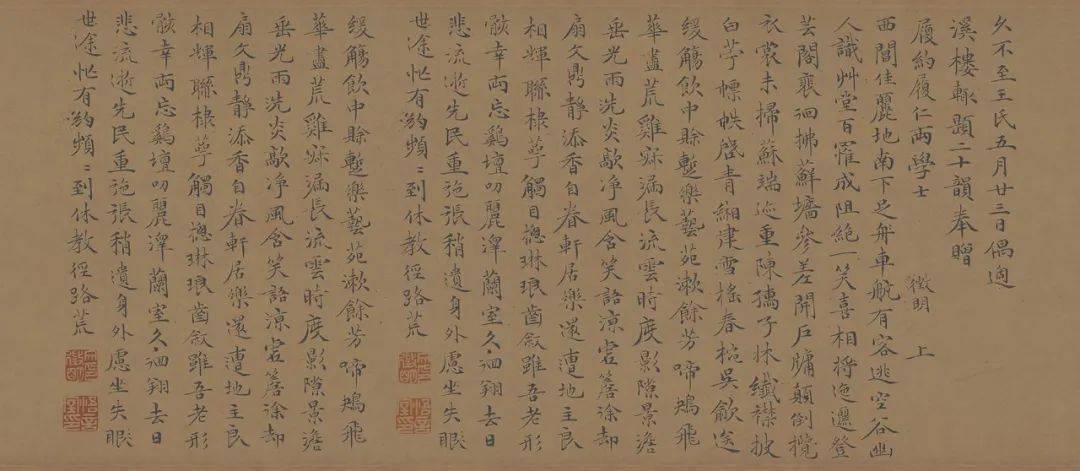 久不至王氏五月廿三日偶過
溪樓輒題二十韻奉贈
履約履仁兩學士 徵明 上
西閶佳麗地南下足舟車航有客逃空谷幽
人識艸堂百罹成阻絕一笑喜相將迤邐登
芸閣裵回拂蘚墻參差開戶牖顛倒攬
衣裳未掃蘇端迹重陳孺子牀纖襟披
白苧幖帙啓青緗建雪搖春椀吳歈送
緩觴飲中賒蹔樂藝苑漱餘芳啼鴂飛
華盡荒雞寐漏長流雲時度影隙景澹
垂光雨洗炎歊凈風含笑語涼虛簷涂却
扇文鼎靜添香自眷軒居樂還遭地主良
相輝聯棣萼觸目總琳琅齒敘雖吾老形
骸幸兩忘鷄壇叨麗澤蘭室久迴翔去日
悲流逝先民重弛張稍遺身外慮坐失眼
世途忙有約頻〻到休教徑路荒
緩觴飲中賒蹔樂藝苑漱餘芳啼鴂飛
華盡荒雞寐漏長流雲時度影隙景澹
垂光雨洗炎歊凈風含笑語涼虛簷涂却
扇文鼎靜添香自眷軒居樂還遭地主良
相輝聯棣萼觸目總琳琅齒敘雖吾老形
骸幸兩忘鷄壇叨麗澤蘭室久迴翔去日
悲流逝先民重弛張稍遺身外慮坐失眼
世途忙有約頻〻到休教徑路荒